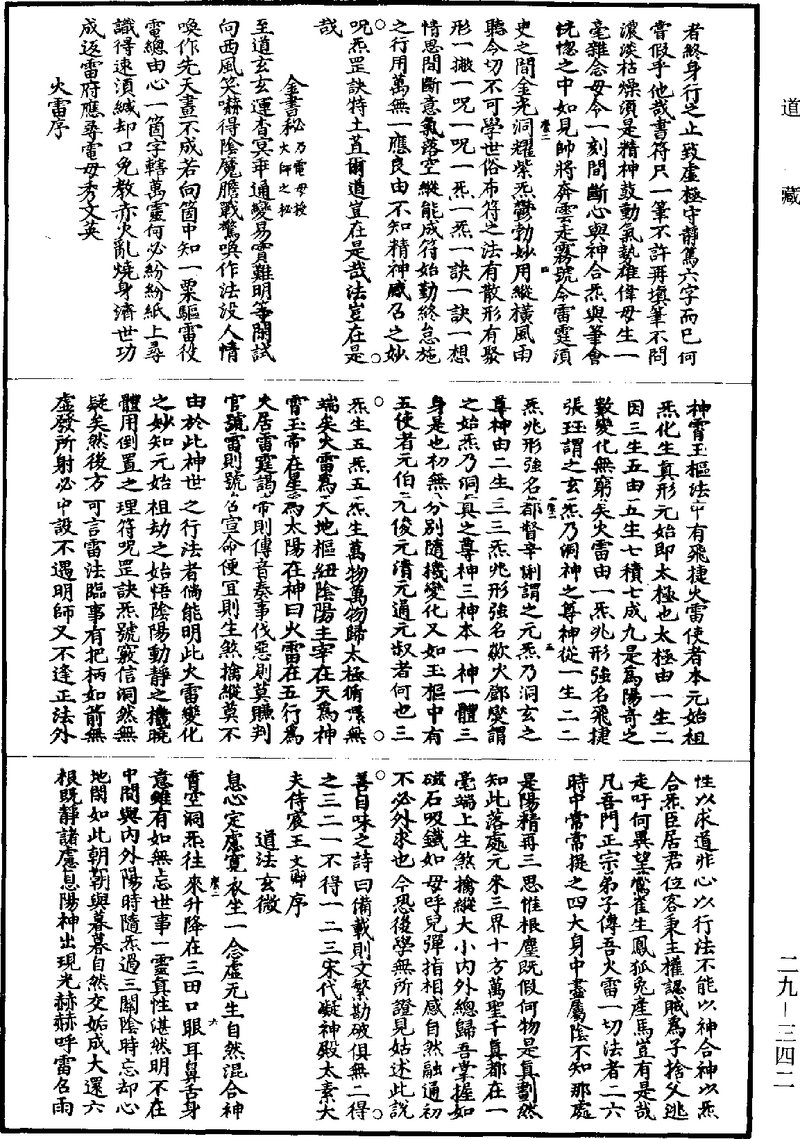 道藏
者終身行之止致虛極守靜篤六字而已何
嘗假乎他哉書符只一筆不許再填筆不問
濃淡枯燥須是精神鼓動氣勢雄偉毋生一
毫雜念毋令一刻間斷心與神合炁與筆會
恍惚之中如見帥將奔雲走霧號令雷霆須
臾之間金光洞耀紫炁鬱勃妙用縱橫風雨
聽令切不可學世俗布符之法有散形有聚
形一撇一呪一呪一炁一炁一訣一訣一想
情思間斷意氣落空縱能成符始勤終怠施
之行用萬無一應良由不知精神感召之妙
呪炁罡訣特土苴爾道豈在是哉法豈在是
哉
金書秘 乃電母授火師之秘
至道玄玄運杳冥串通變易實難明等閑試
向西風笑嚇得陰魔膽戰驚喚作法沒人情
喚作先天畫不成若向箇中知一粟驅雷役
電總由心一箇字轄萬靈何必紛紛紙上尋
識得速須緘却口免教亦火亂燒身濟世功
成返雷府應尋電母秀文英
火雷序
神霄玉樞法中有飛捷火雷使者本元始祖
炁化生真形元始即太極也太極由一生二
因三生五由五生七積七成九是爲陽奇之
數變化無窮矣火雷由一炁兆形強名飛捷
張珏謂之玄炁乃洞神之尊神從一生二二
炁兆形強名都督辛漢臣謂之元炁乃洞玄之
尊神由二生三三炁兆形強名欻火鄧燮謂
之始炁乃洞真之尊神三神本一神一體三
身是也初無分別隨機變化又如玉樞中有
五使者元伯元俊元濆元通元叔者何也三
炁生五炁五炁生萬物萬物歸太極循環無
端矣火雷爲天地樞紐陰陽主宰在天爲神
霄玉帝在星爲太陽在神曰火雷在五行爲
火居雷霆謁帝則傳音奏事伐惡則莫賺判
官號雷則號召宣命便宜則生煞擒縱莫不
由於此神世之行法者倘能明此火雷變化
之妙知元始祖劫之始悟陰陽動靜之機曉
體用倒置之理符呪罡訣炁號竅信洞然無
疑矣然後方可言雷法臨事有把柄如箭無
虛發所射必中設不遇明師又不逢正法外
性以求道非心以行法不能以神合神以炁
合炁臣居君位客秉主權認賊爲子捨父逃
走吁何異望鷰雀生鳳狐兔產馬豈有是哉
凡吾門正宗弟子傳吾火雷一切法者二六
時中常常提之四大身中盡屬陰不知那處
是陽精再三思惟根塵既假何物是真劃然
知此落處元來三界十方萬聖千真都在一
毫端上生煞擒縱大小內外總歸吾掌握如
磁石吸鐵如母呼兒彈指相感自然融通初
不必外求也今恐後學無所證見姑述此說
善自味之詩曰備載則文繁勘破俱無二得
之三二一不得一二三宋代凝神殿太素大
夫侍宸王文卿序
道法玄微
息心定慮寬衣坐一念虛无生自然混合神
霄空洞炁往來升降在三田口眼耳鼻舌身
意雖有如無忘世事一靈真性湛然明不在
中間與內外陽時隨炁過三關陰時忘却心
地閑如此朝朝與暮暮自然交姤成大還六
根既靜諸慮息陽神出現光赫赫呼雷召雨
二九-三四二